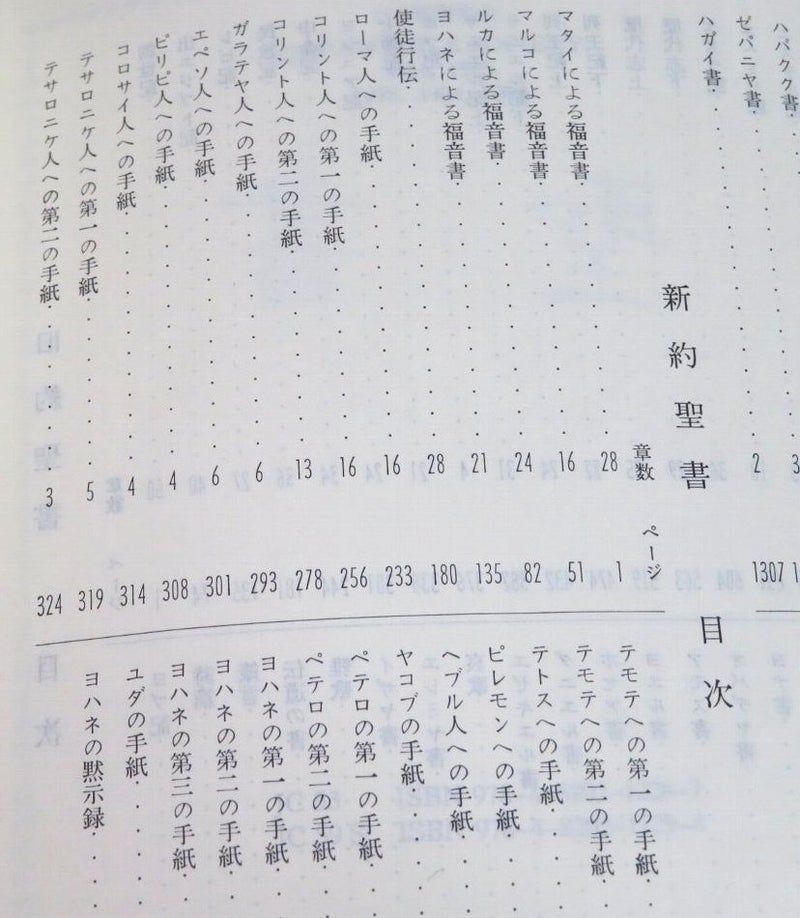 ハバクク書
ゼパニヤ書 3
ハガイ書 2 1307
新約聖書 目次
章数 ページ
マタイによる福音書 28 1
マルコによる福音書 16 51
ルカによる福音書 24 82
ヨハネによる福音書 21 135
使徒行伝 28 180
ローマ人への手紙 16 233
コリント人への第一の手紙 16 256
コリント人への第二の手紙 13 278
ガラテヤ人への手紙 6 293
エペソ人への手紙 6 301
ピリピ人への手紙 4 308
コロサイ人への手紙 4 314
テサロニケ人への第一の手紙 5 319
テサロニケ人への第二の手紙 3 324
テモテへの第一の手紙
テモテへの第二の手紙
テトスへの手紙
ピレモンへの手紙
ヘブル人への手紙
ヤコブの手紙
ペテロの第一の手紙
ペテロの第二の手紙
ヨハネの第一の手紙
ヨハネの第二の手紙
ヨハネの第三の手紙
ユダの手紙
ヨハネの黙示録